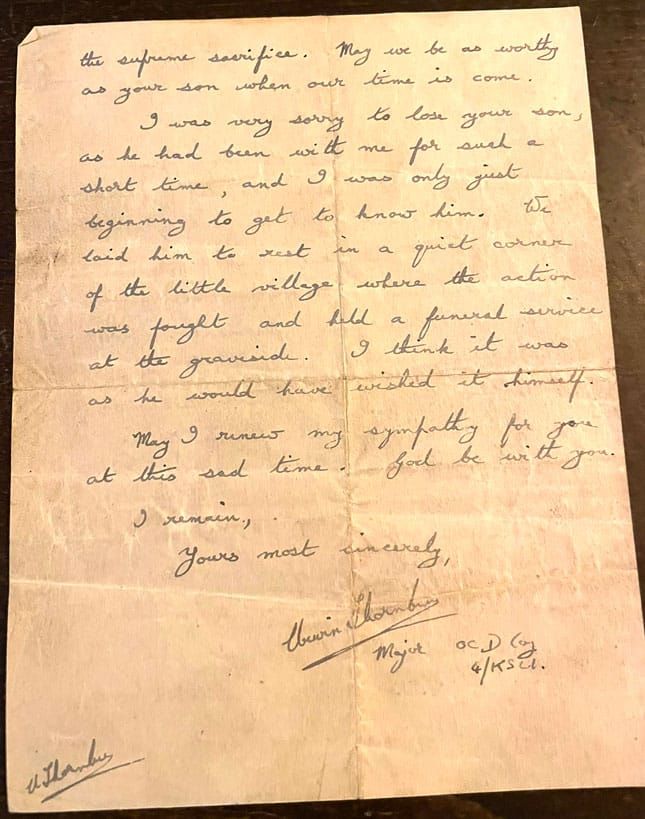 the supreme sacrifice. May we be as worthy
as your son when our time is come.
I was very sorry to lose your son,
as he had been with me for such a
short time, and I was only just
beginning to get to know him. We
laid him to rest in a quiet corner
of the little village where the action
was fought and held a funeral service
at the graveside. I think it was
as he would have wished it himself.
May I renew my sympathy for you
at this sad time. God be with you.
I remain,
Yours most sincerely,
Thornburn
Major OC D Coy
4/KSLI.